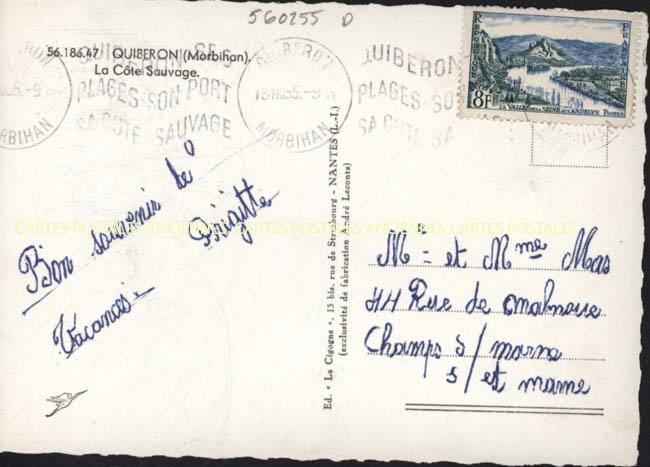 560255 D
56.186.47 QUIBERON (Morbihan).
La Côte Sauvage.
QUIBERON
MORBIHAN
QUIBERON SES
PLAGES-SON PORT
SA COTE SAUVAGE
QUIBERON
MORBIHAN
QUIBERON
PLAGES-SO
SA COTE SA
MORBIHAN
8F
LA VALLÉE DE LA SEINE AUX ANDELYS POSTES
Bon souvenir de
Vacances
Brigitte
CARTES POSTALES ANCIENNES CARTES POSTALES ANCIENNES CARTES POSTALES
Ed. " La Cigogne ", 15 bis, rue de Strasbourg - NANTES (L.-I.)
(exclusivité de fabrication André Leconte)
M= et Mme Mas
44 Rue de
Champs s/ marne
s/ et marne